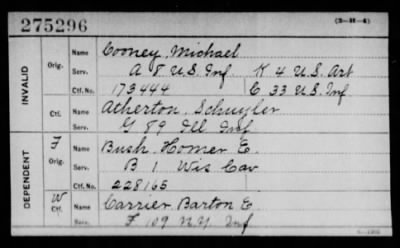 275296 (3-H-4)
INVALID Orig. Name Cooney, Michael
Serv. A 8 U.S. Inf K 4 U.S. Art
Ctf. No. 173444 C 33 U.S. Inf
Ctf. Name Atherton, Schuyler
Serv. G 89 Ill Inf
DEPENDENT F Orig. Name Bush, Homer E.
Serv. B 1 Wis Cav
Ctf. No. 228165
W Ctf. Name Carrier, Barton E
Serv. F 109 N.Y. Inf